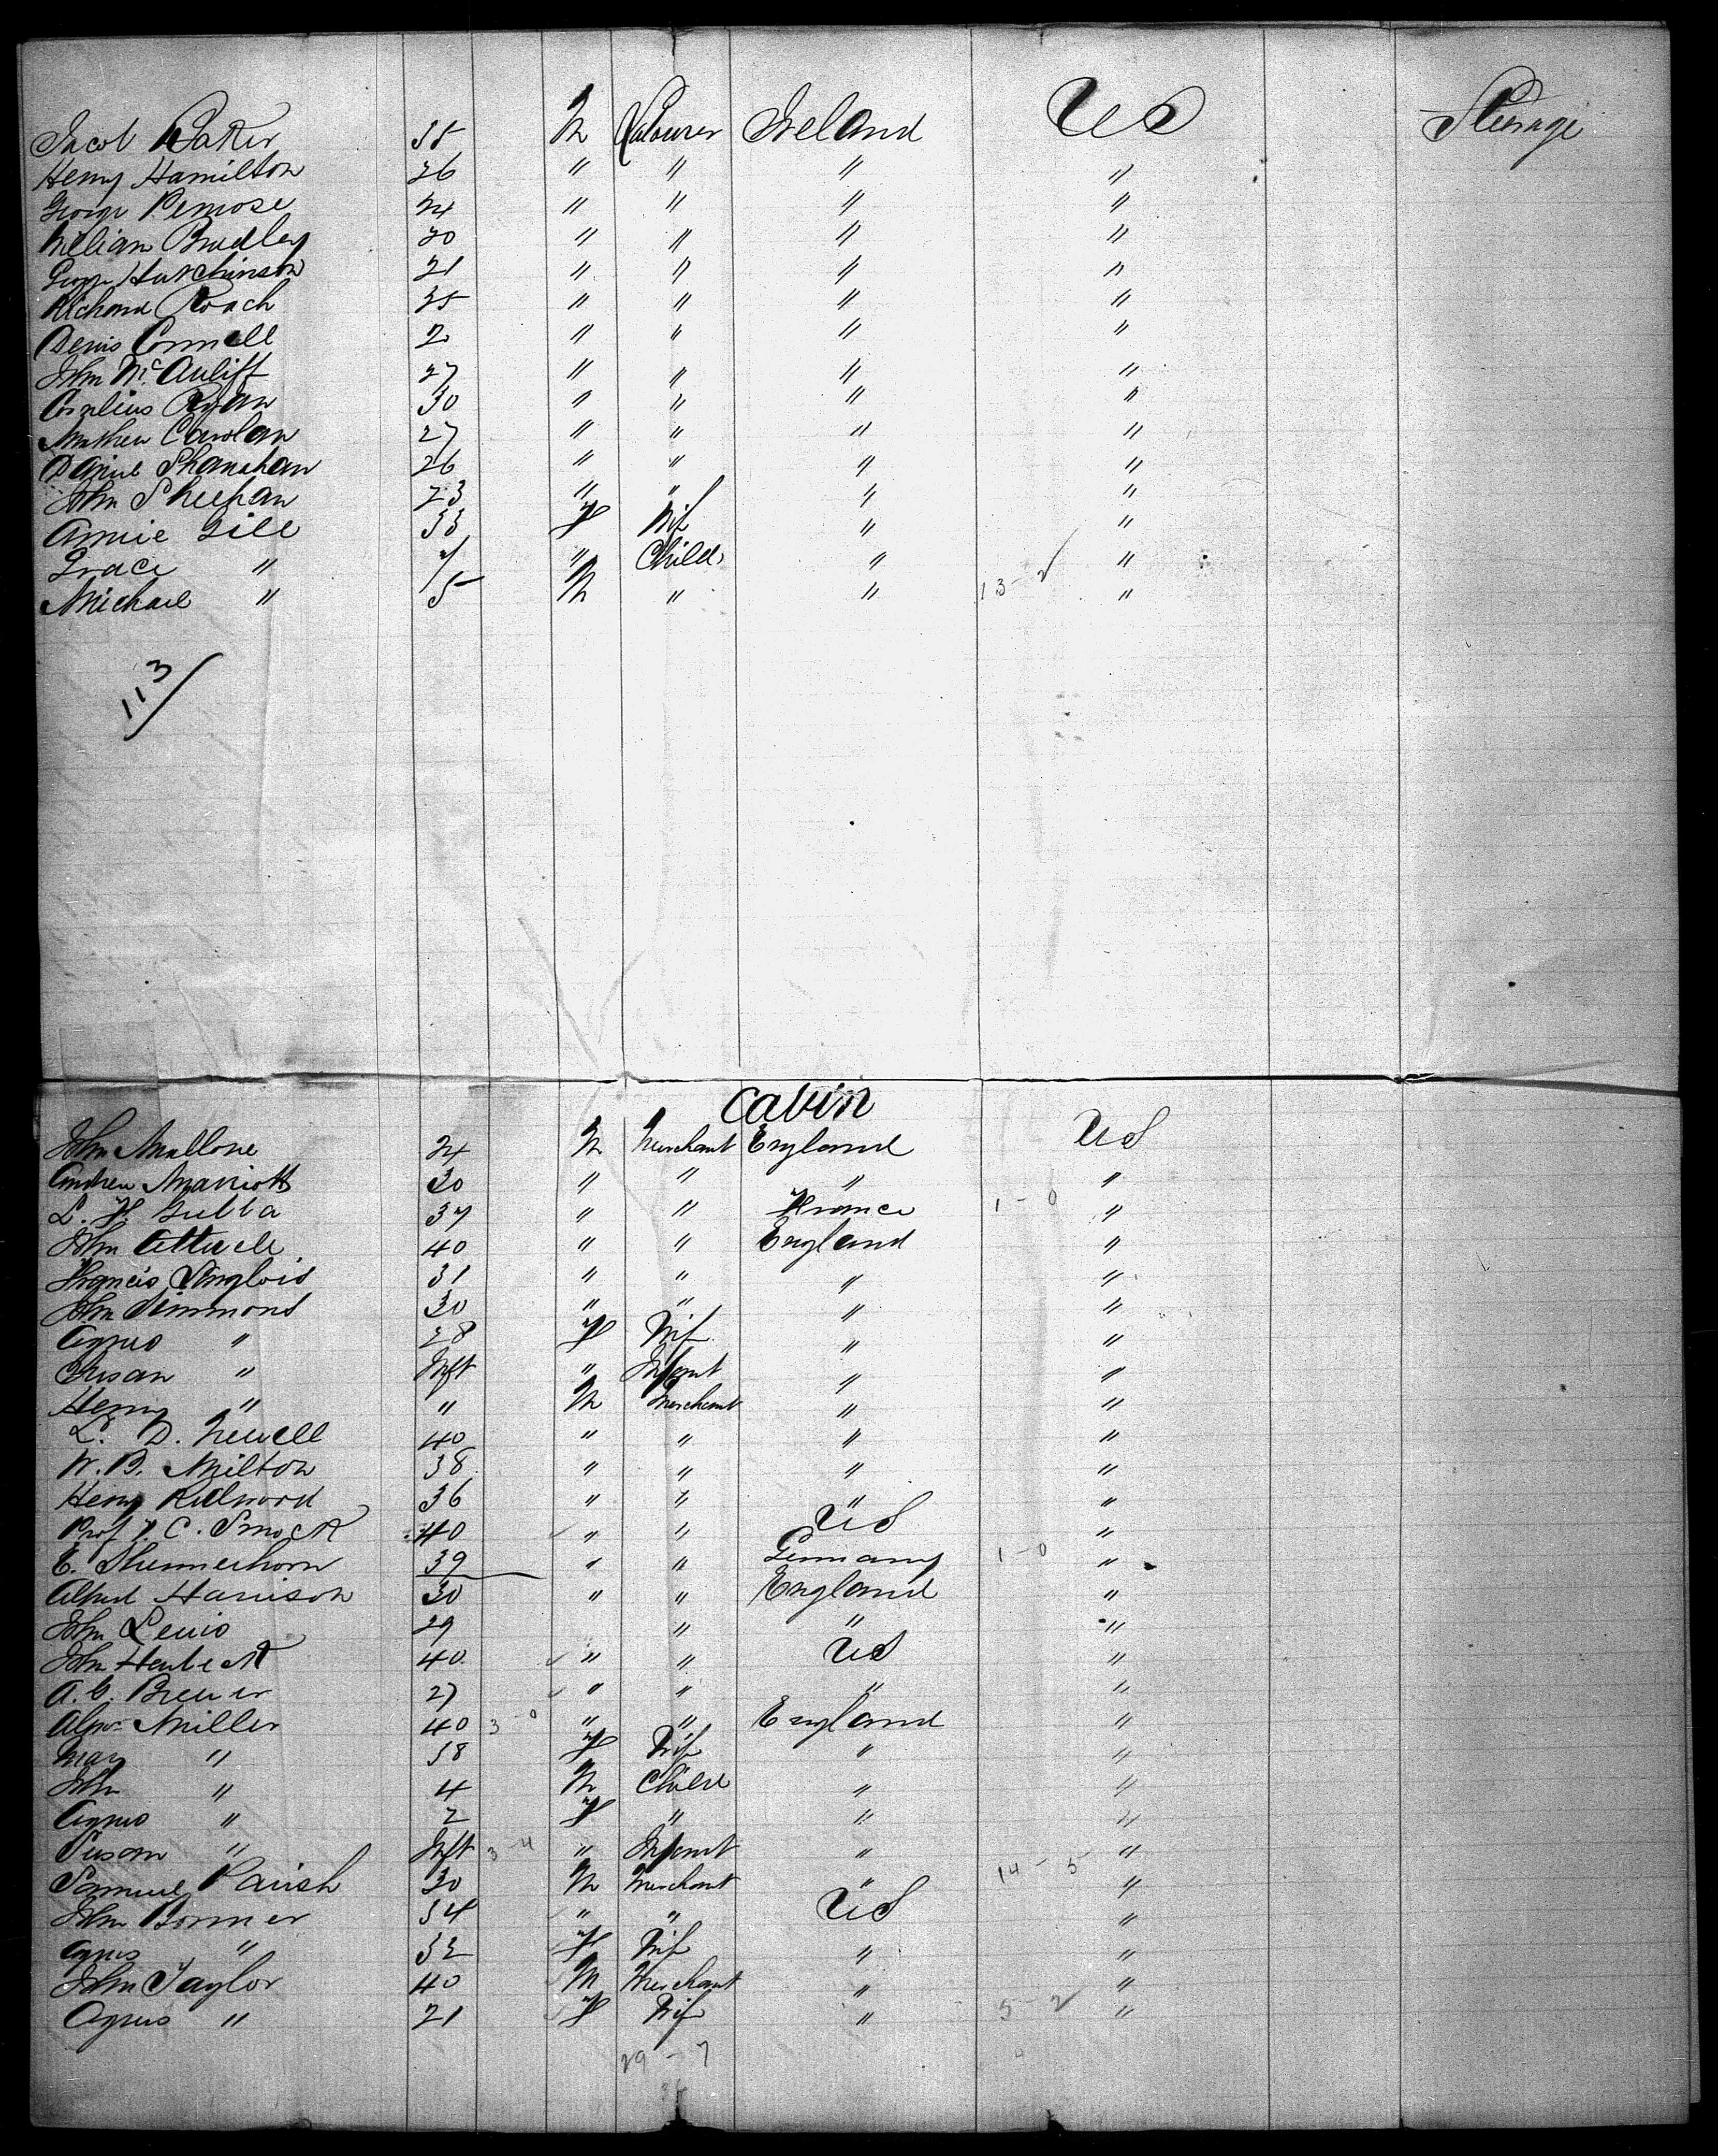 Jacob Baker 35 M Labourer Ireland US Steerage
Henry Hamilton 26 " " " "
George Penrose 24 " " " "
William Bradley 20 " " " "
George Hutchinson 21 " " " "
Richard Roach 25 " " " "
Denis Connell 2 " " " "
John McAuliff 27 " " " "
Cornelius Ryan 30 " " " "
Mathew Carolan 27 " " " "
Daniel Shanahan 26 " " " "
John Sheehan 23 " " " "
Annie Gill 33 F Wife " "
Grace " 7 " Child " "
Michael " 5 M " " 13-2 "
113/
Cabin
John Mallone 24 M Merchant England US
Andrew Marriott 30 " " " "
L. H. Gubba 37 " " France 1-0 "
John Attwell 40 " " England "
Francis Langlois 31 " " " "
John Simmons 30 " " " "
Agnes " 28 F Wife " "
Susan " Inft " Infant " "
Henry " " M Merchant " "
L. D. Newell 40 " " " "
W. B. Milton 38 " " " "
Henry 36 " " " "
Prof J. C. Smock 40 " " US "
E. 39 " " Germany 1-0 "
Alfred Harrison 30 " " England "
John Lewis 29 " " "
John 40 " " US "
A. C. Brewer 27 " " " "
Alexr Miller 40 3-0 " " England "
Mary " 38 F Wife " "
John " 4 M Child " "
Agnes " 2 F " " "
Susan " Inft 3-4 " Infant " "
Samuel Parish 30 M Merchant " 14-5 "
John Bonner 34 " " US "
Agnes " 32 F Wife " "
John Taylor 40 M Merchant " "
Agnes " 21 F Wife " 5-2 "
29-7
36